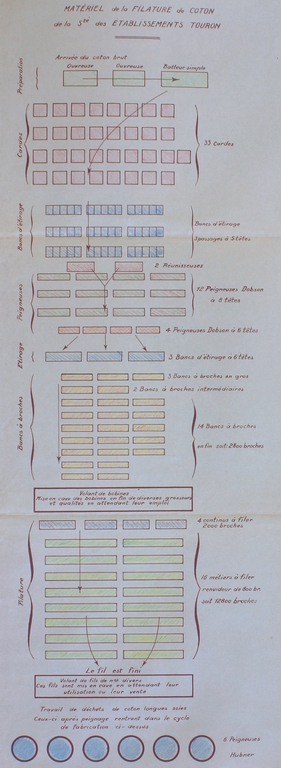 MATÉRIEL de la FILATURE de COTON
de la Sté des ETABLISSEMENTS TOURON
Arrivée du coton brut
Ouvreuse Ouvreuse Batteur simple
Préparation
Cardes
33 Cardes
Bancs d'étirage
Bancs d'étirage
3 passages à 5 têtes
2 Réunisseuses
Peigneuses
12 Peigneuses Dobson
à 8 têtes
4 Peigneuses Dobson à 6 têtes
Etirage
3 Bancs d'étirage à 6 têtes
3 Bancs à broches en gros
2 Bancs à broches intermédiaires
Bancs à broches
14 Bancs à broches
en fin soit: 2800 broches
Volant de bobines
Mise en cave des bobines en fin de diverses grosseurs
et qualités en attendant leur emploi
4 continus à filer
2000 broches
Filature
16 métiers à filer
renvideur de 800 br.
soit 12800 broches
Le fil est fini
Volant de fils de nos divers
Ces fils sont mis en cave en attendant leur
utilisation ou leur vente
Travail de déchets de coton longues soies
Ceux-ci après peignage rentrent dans le cycle
de fabrication ci-dessus
6 Peigneuses
Hubner